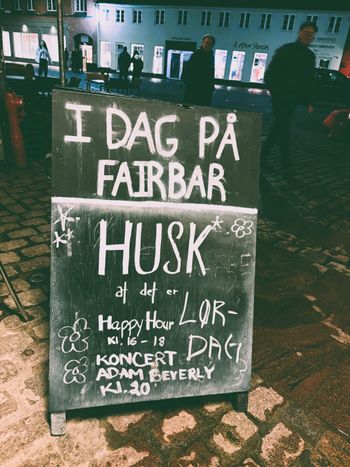 I DAG PÅ
FAIRBAR
HUSK
at det er
LØR-
DAG
Happy Hour
Kl. 16-18
KONCERT
ADAM BEYERLY
Kl. 20